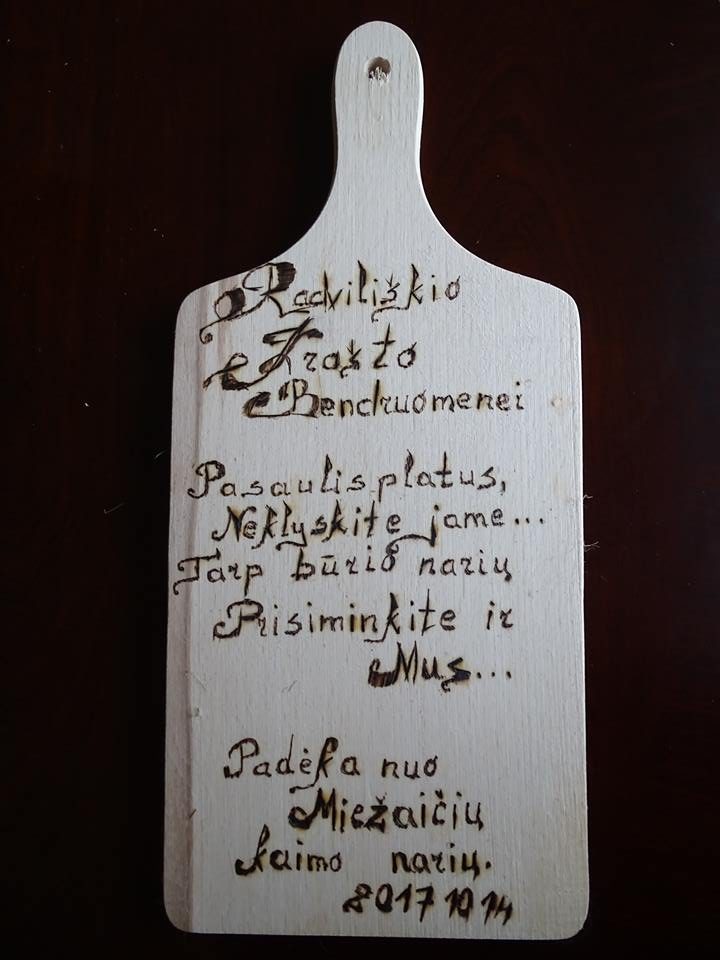 Radviliškio
Krašto
Bendruomenei
Pasaulis platus,
Neklyskite jame...
Tarp būrio narių
Prisiminkite ir
Mus...
Padėka nuo
Miežaičių
kaimo narių.
2017 10 14